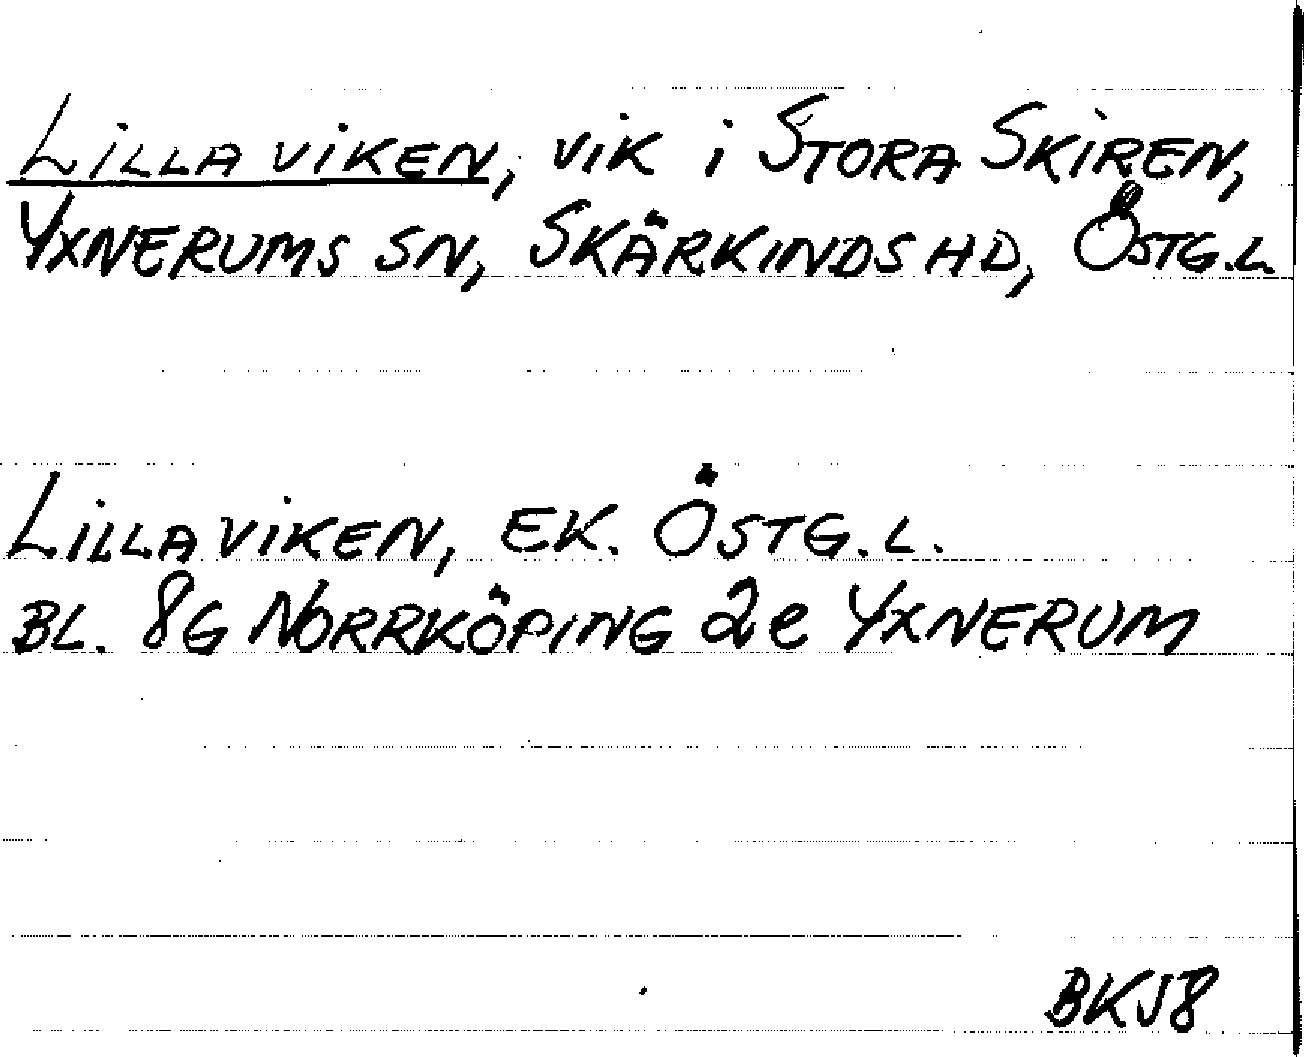 LILLA VIKEN, VIK i STORA SKIREN,
YXNERUMS SN, SKÄRKINDS HD, ÖSTG.L.
LILLA VIKEN, EK. ÖSTG.L.
BL. 8G NORRKÖPING 2e YXNERUM
BKJ8